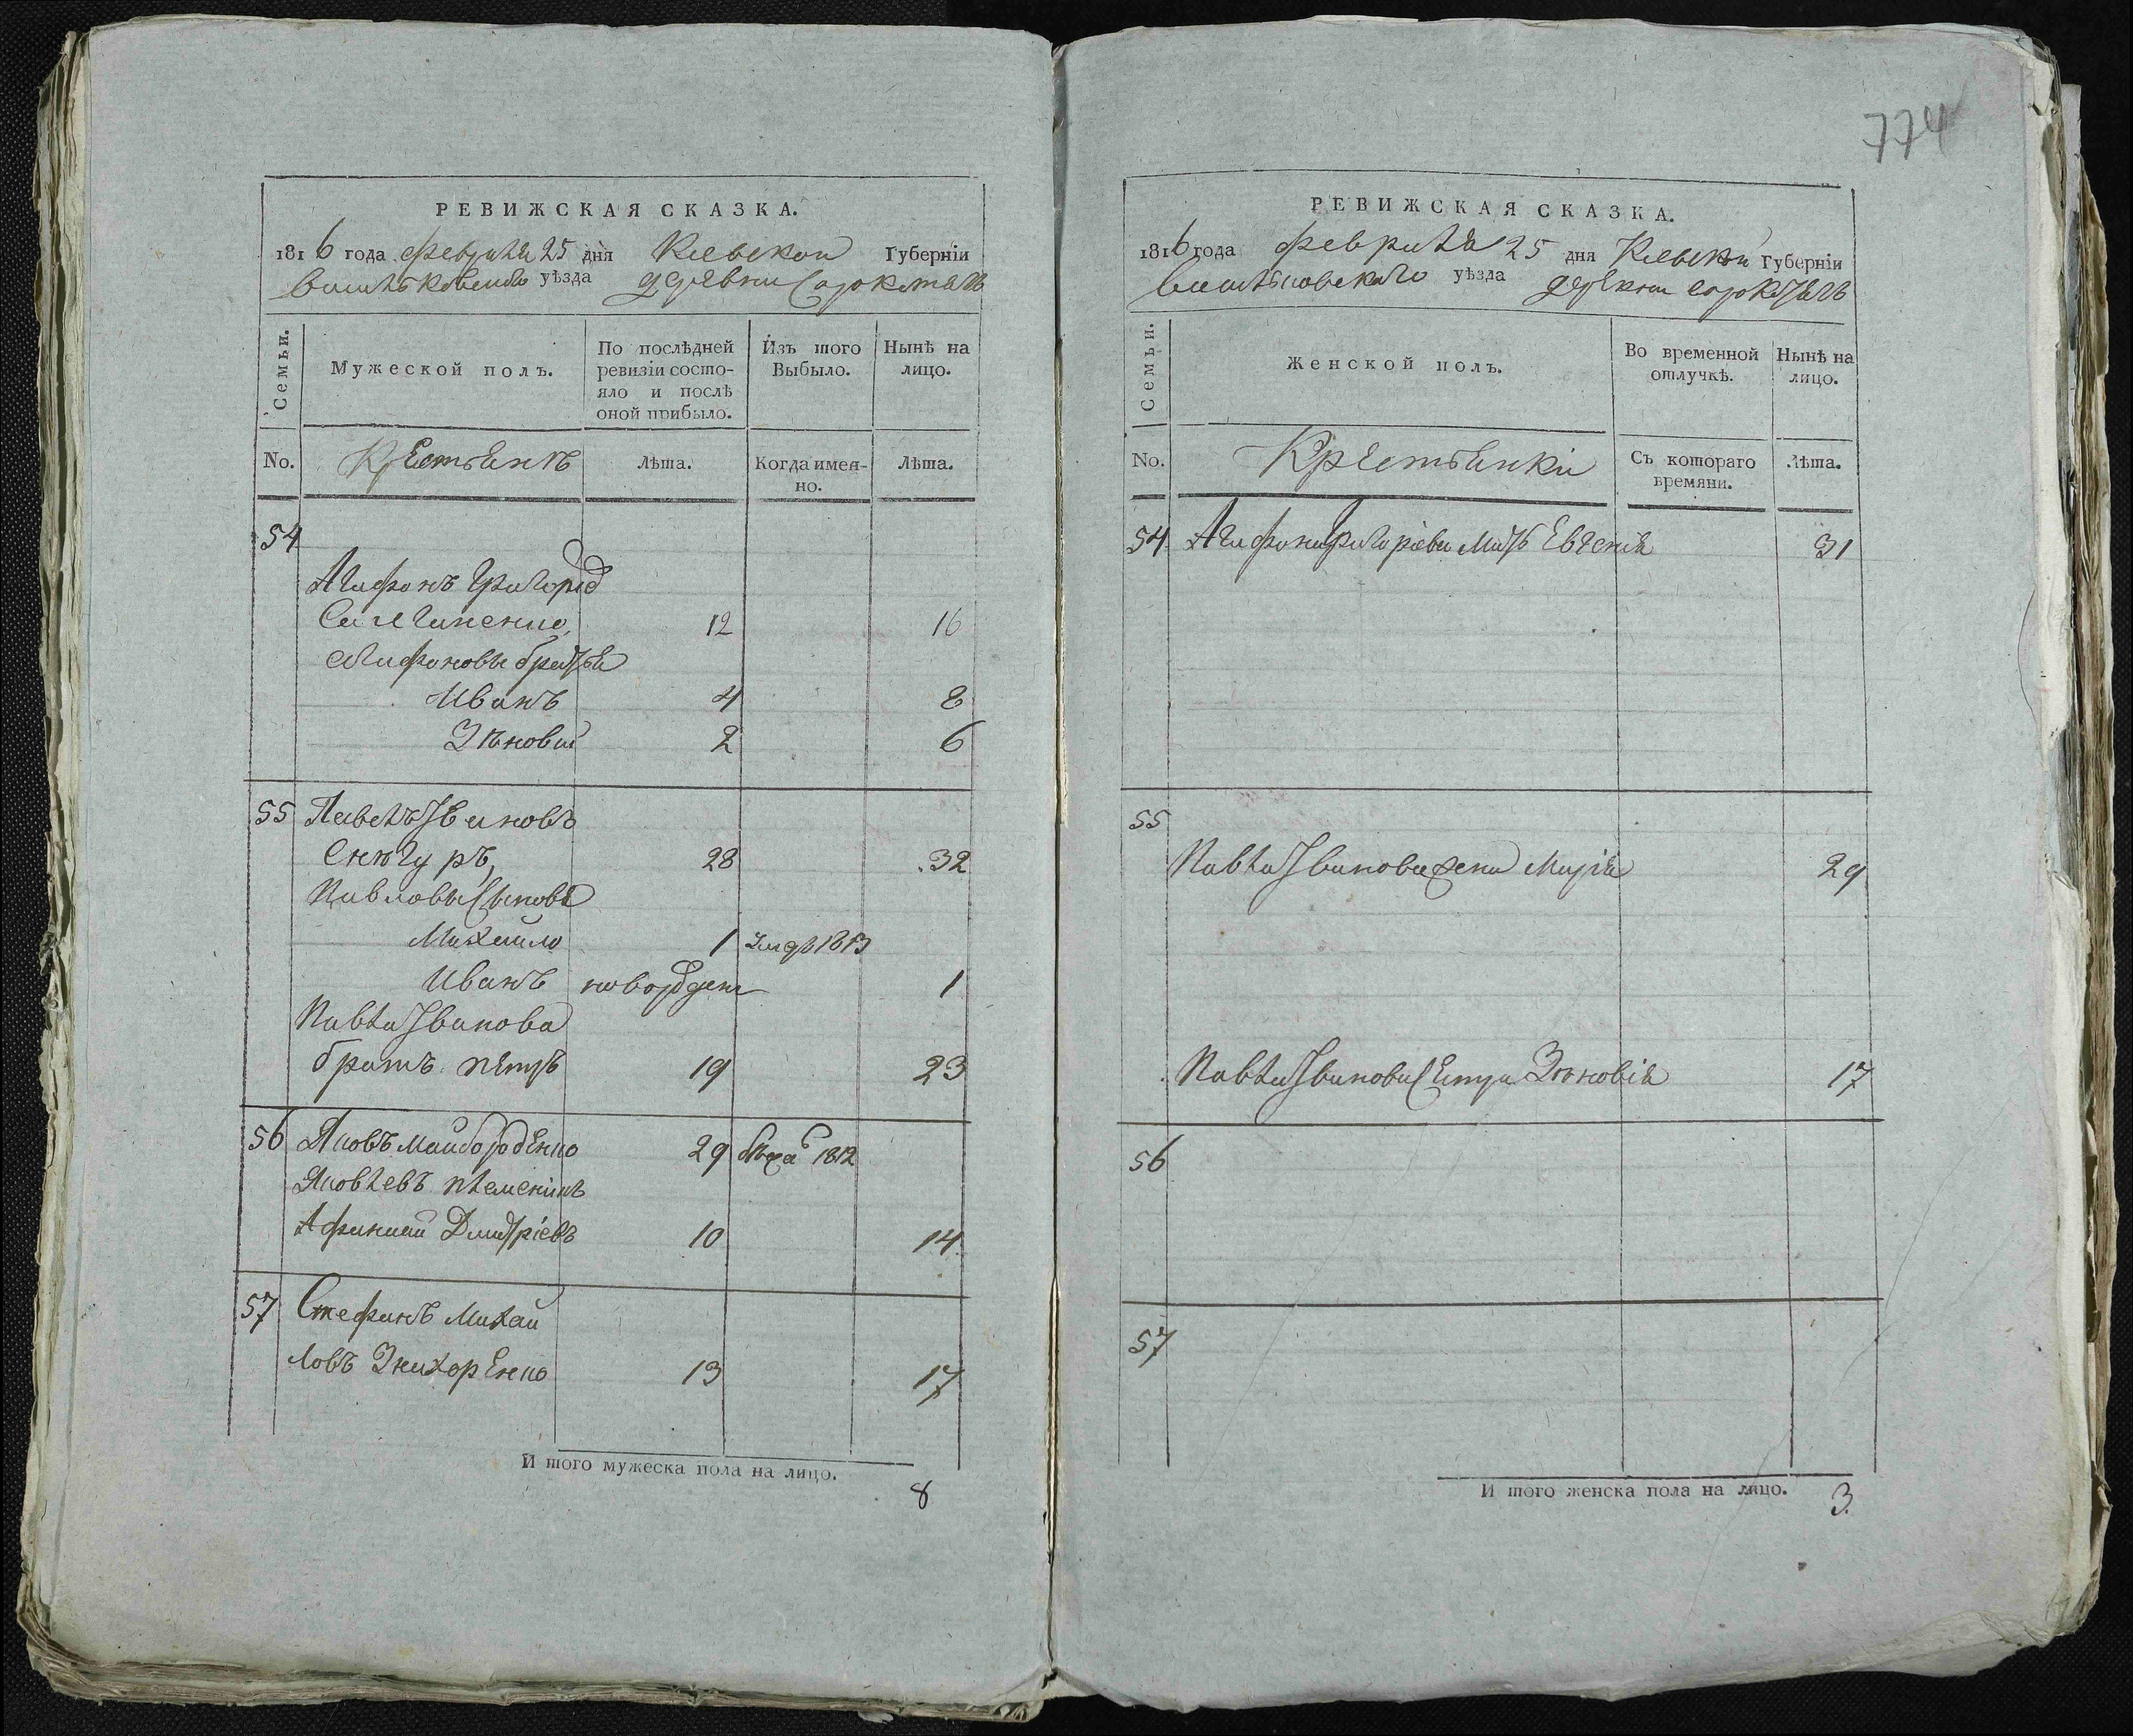 774
РЕВИЖСКАЯ СКАЗКА.
1816 года февраля 25 дня Киевской Губерніи
Васильковскаго уѣзда деревни Сорокотягъ
Семьи.
Мужеской полъ.
По послѣдней ревизіи состо-
яло и послѣ
оной прибыло.
Изъ того
Выбыло.
Нынѣ на
лицо.
No.
Крестьянъ
Лѣта.
Когда имея-
но.
Лѣта.
54
Агафонъ Григорьев
12 16
Агафоновы братья
Иванъ 4 8
Зѣновий 2 6
55 Павелъ Ивановъ
Снѣгуръ, 28 32
Павловы Сыновья
Михайло 1 умре 1813
Иванъ новорожден 1
Павла Иванова
братъ Петръ 19 23
56 Яковъ Майбороденко 29 1812
Яковлевъ племеникъ
Афанасий Дмитріевъ 10 14
57 Стефанъ Михай
ловъ Захоренко 13 17
И того мужеска пола на лицо. 8
РЕВИЖСКАЯ СКАЗКА.
1816 года февраля 25 дня Киевской Губерніи
Васильковскаго уѣзда деревни Сорокотягъ
Семьи.
Женской полъ.
Во временной
отлучкѣ.
Нынѣ на
лицо.
No.
Крестьянки
Съ котораго
времяни.
Лѣта.
54 Агафона Григоріева мать Евгенія 31
55
Павла Иванова жена Марія 29
Павла Иванова Сестра Зѣновія 17
56
57
И того женска пола на лицо. 3.